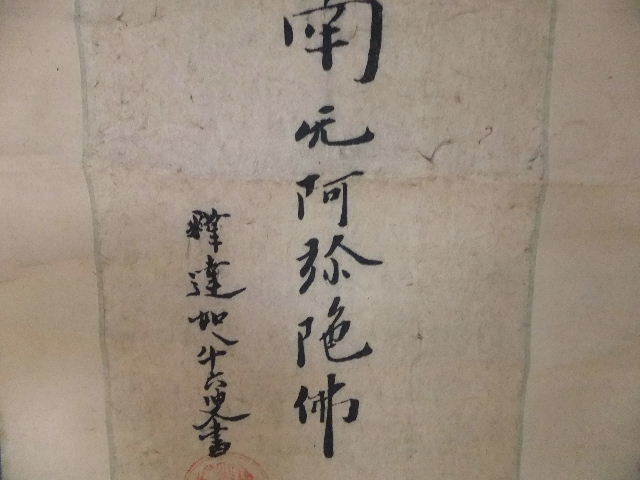 南无阿弥陀佛
釋達如八十六叟書